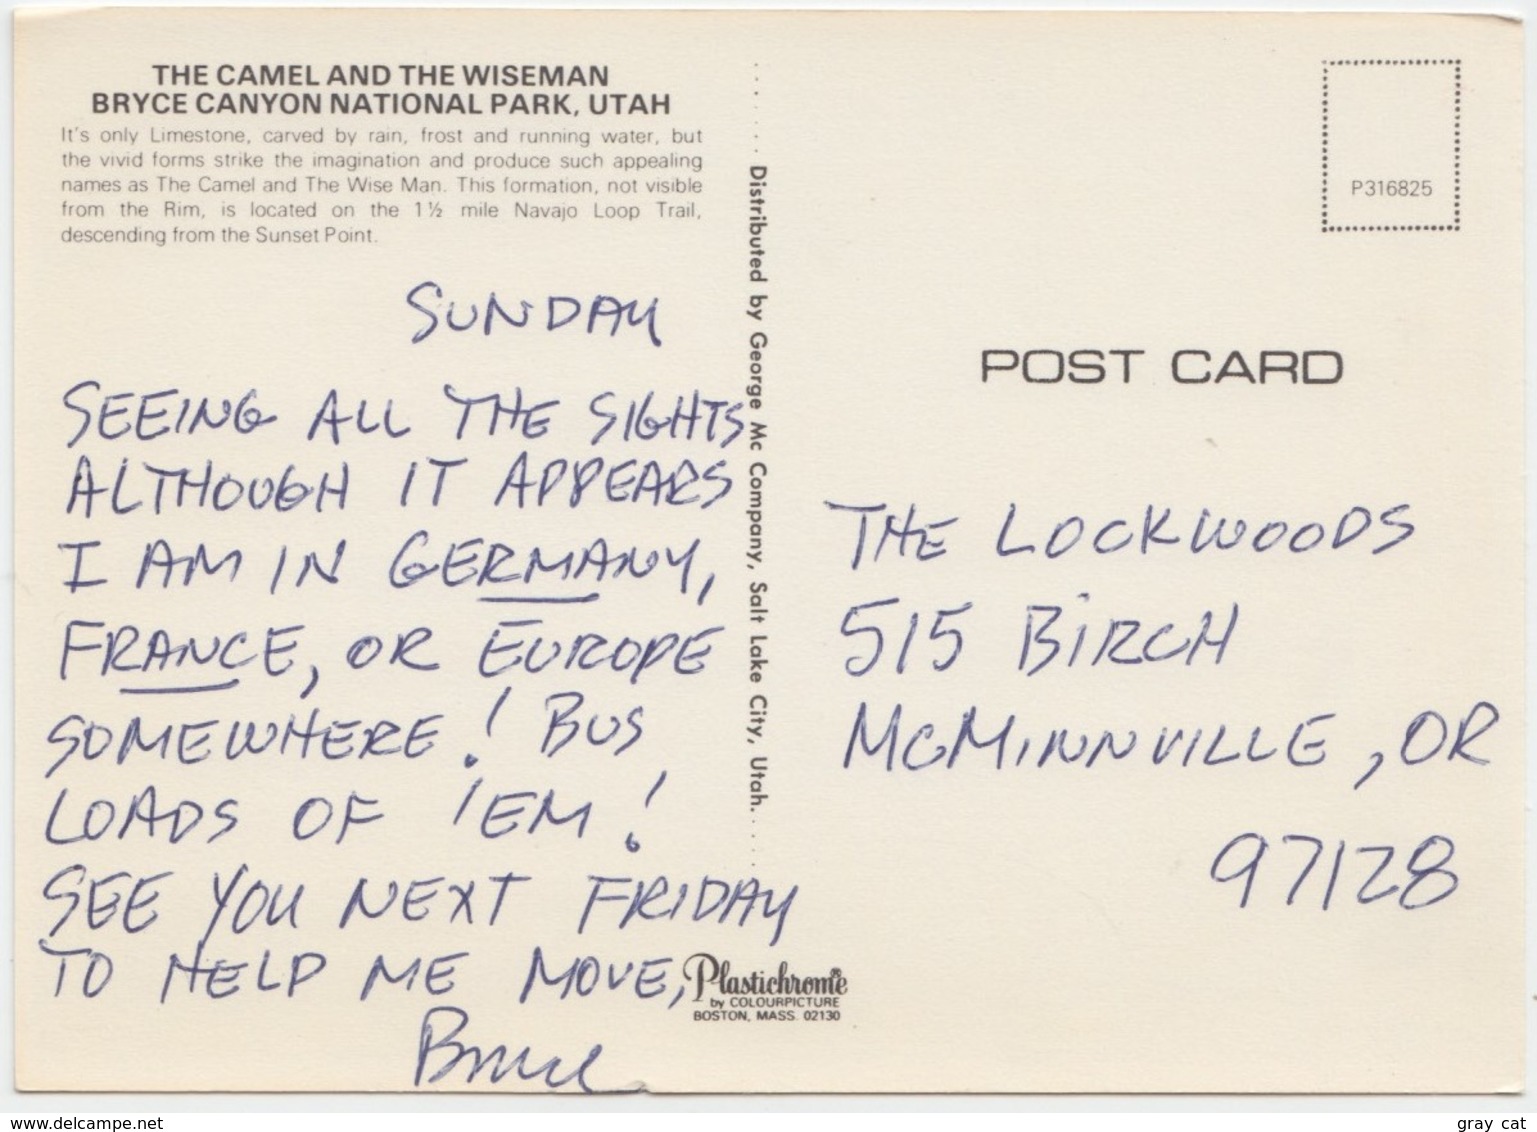 THE CAMEL AND THE WISEMAN
BRYCE CANYON NATIONAL PARK, UTAH
It's only Limestone, carved by rain, frost and running water, but
the vivid forms strike the imagination and produce such appealing
names as The Camel and The Wise Man. This formation, not visible
from the Rim, is located on the 1½ mile Navajo Loop Trail,
descending from the Sunset Point.
SUNDAY
SEEING ALL THE SIGHTS
ALTHOUGH IT APPEARS
I AM IN GERMANY,
FRANCE, OR EUROPE
SOMEWHERE! BUS
LOADS OF 'EM!
SEE YOU NEXT FRIDAY
TO HELP ME MOVE,
Bruce
Distributed by George Mc Company, Salt Lake City, Utah.
Plastichrome®
by COLOURPICTURE
BOSTON, MASS. 02130
P316825
POST CARD
THE LOCKWOODS
515 BIRCH
MCMINNVILLE, OR
97128
www.delcampe.net
gray cat